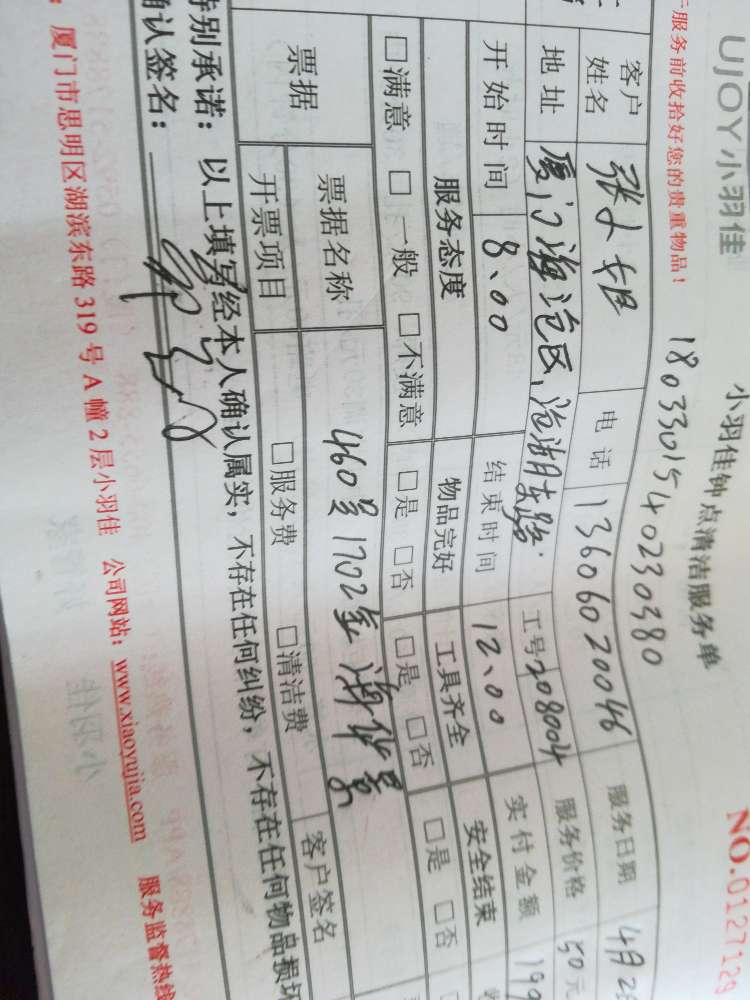 UJOY小羽佳 小羽佳钟点清洁服务单 NO.0127129
服务前收拾好您的贵重物品! 1803301540230380
客户姓名 张小姐 电话 13606020046 服务日期 4月2
地址 厦门海沧区,沧湖东路 工号 208004 服务价格 50元
开始时间 8:00 结束时间 12:00 实付金额 199
服务态度 物品完好 工具齐全 安全结束
□满意 □一般 □不满意 □是 □否 □是 □否 □是 □否
票据 票据名称 460号1702室 客户签名
开票项目 □服务费 □清洁费
特别承诺:以上填写经本人确认属实,不存在任何纠纷,不存在任何物品损坏
确认签名:
厦门市思明区湖滨东路319号A幢2层小羽佳 公司网站:www.xiaoyujia.com 服务监督热线